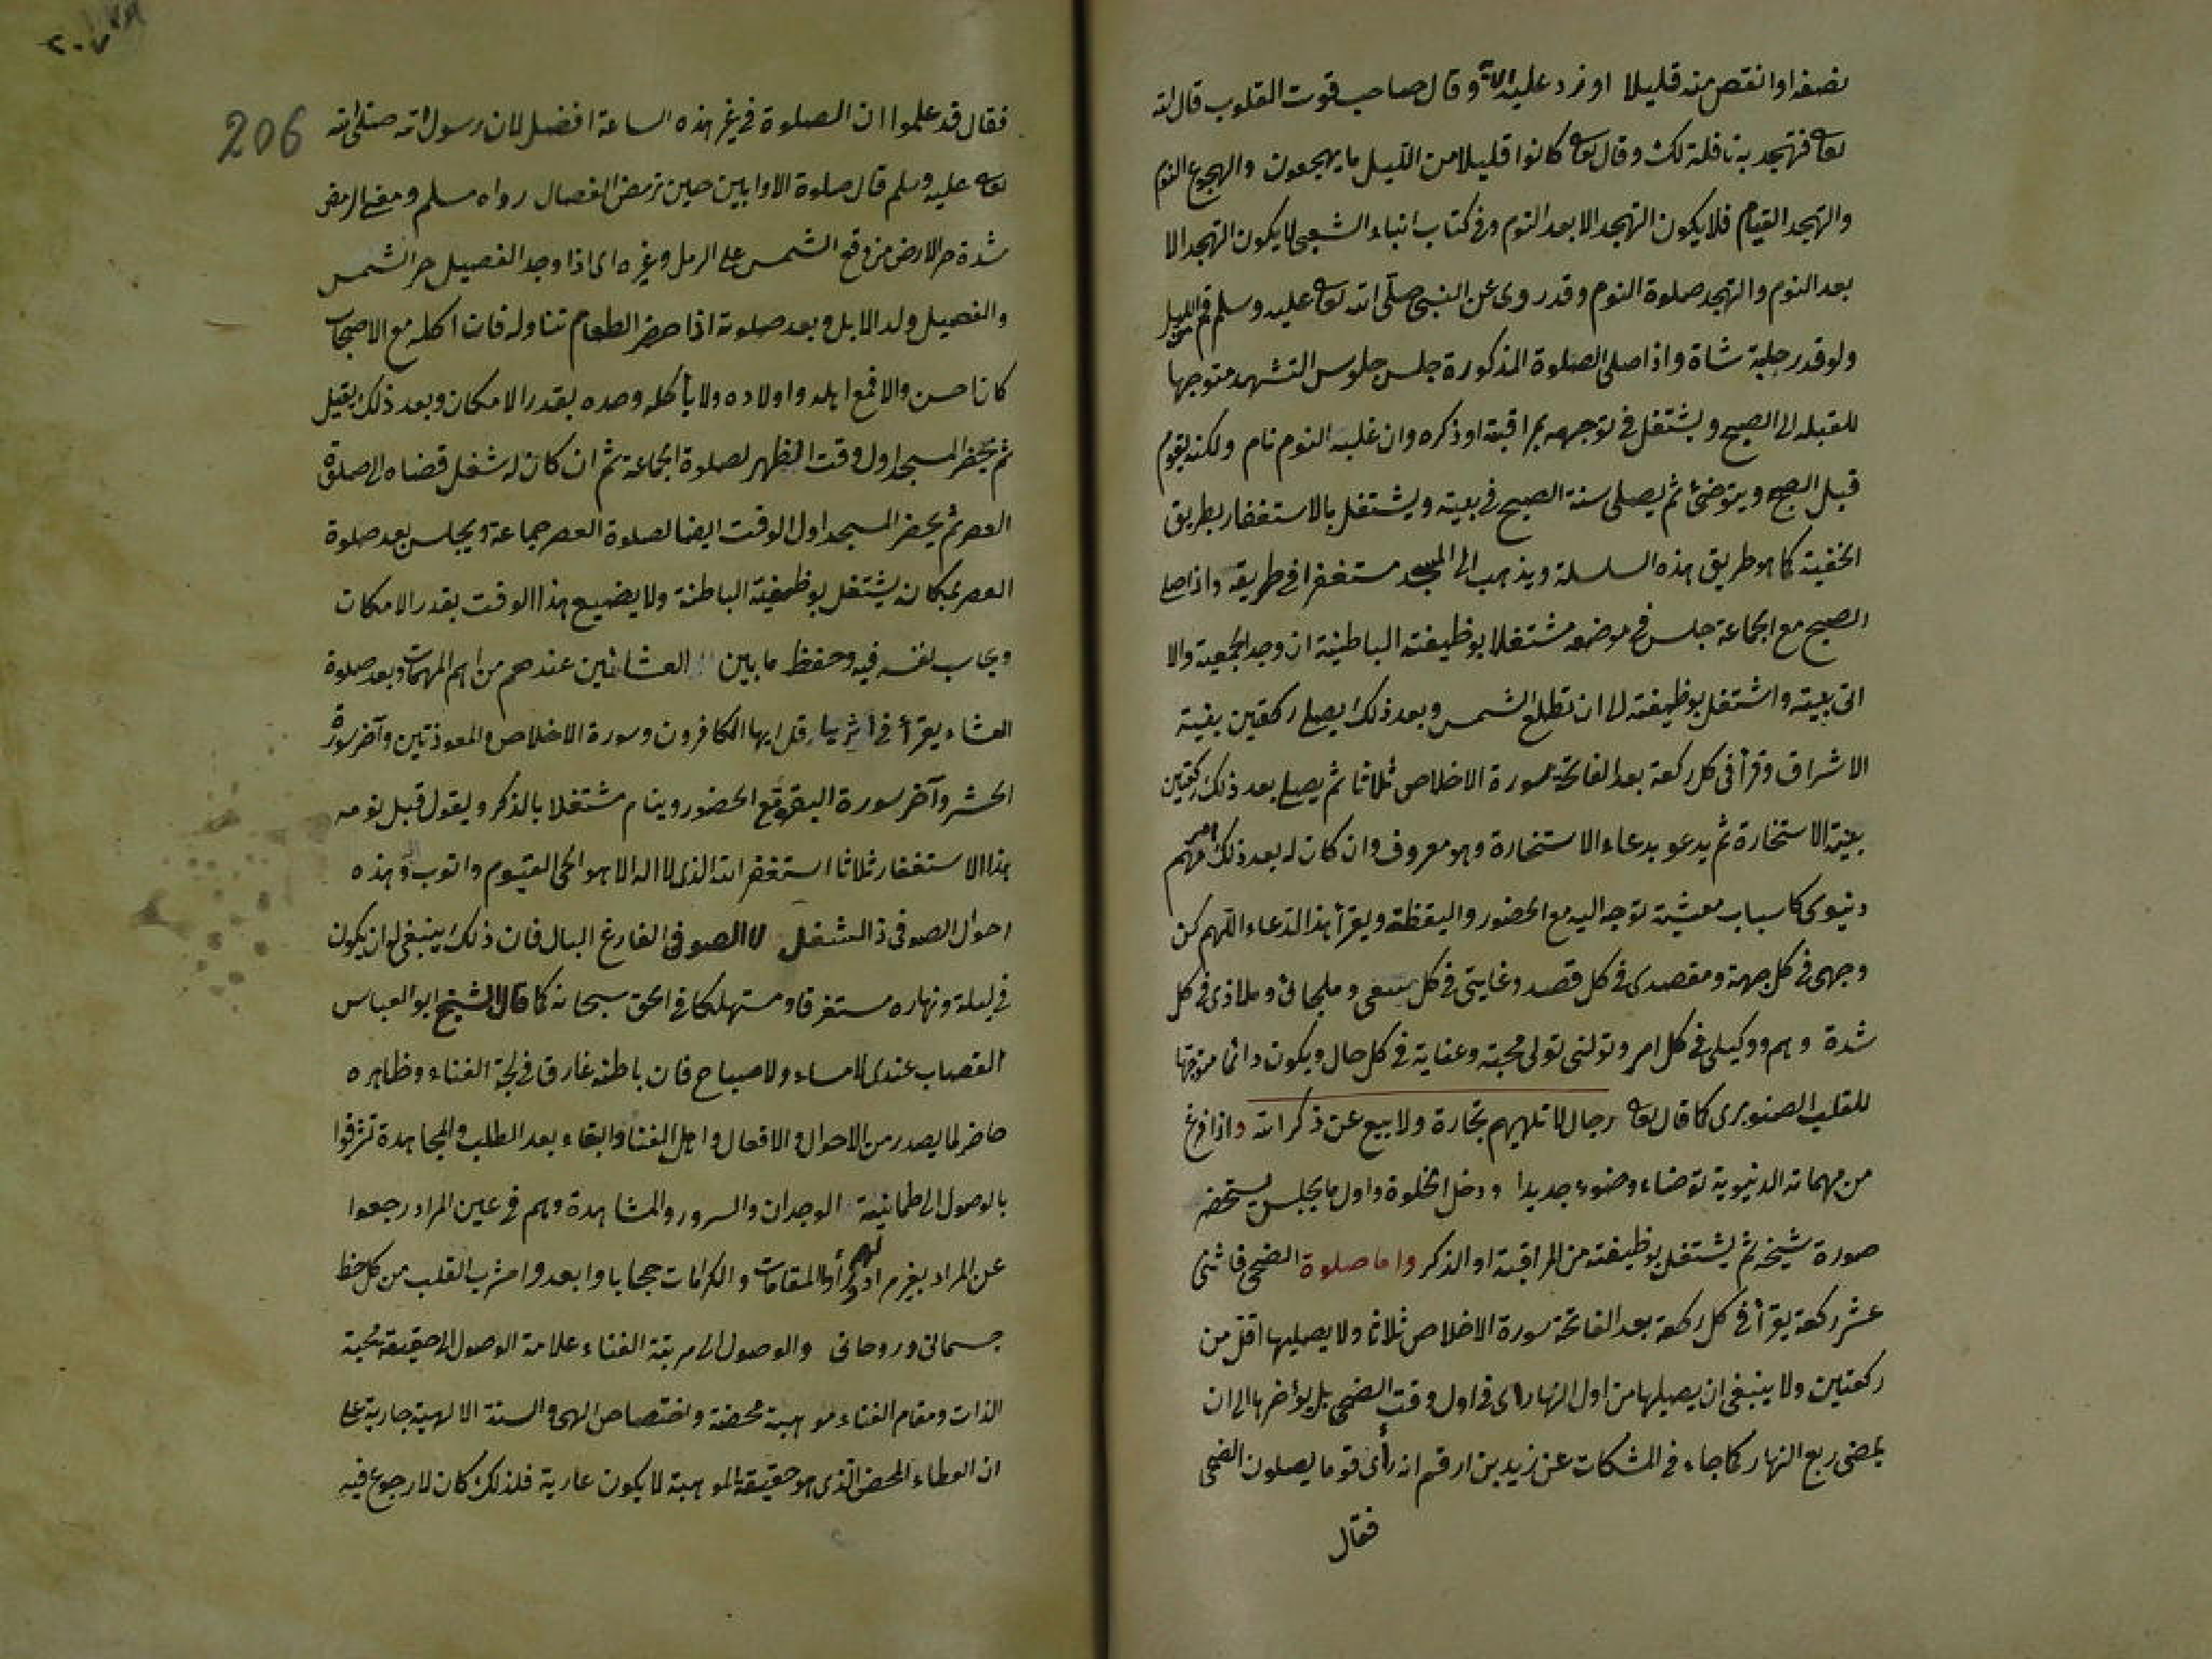 نصفه او انقص منه قليلا او زد عليه الآية وقال صاحب قوت القلوب قال الله
تعالى فتهجد به نافلة لك وقال تعالى كانوا قليلا من الليل ما يهجعون والهجوع النوم
والتهجد القيام فلا يكون التهجد الا بعد النوم وفي كتاب انباء الشعبي لا يكون التهجد الا
بعد النوم والتهجد صلوة النوم وقد روى عن النبي صلى الله تعالى عليه وسلم قم من الليل
ولو قدر حلبة شاة واذا صلى الصلوة المذكورة جلس جلوس التشهد متوجها
للقبله الى الصبح ويشتغل في توجهه بمراقبة او ذكره وان غلبه النوم نام ولكنه يقوم
قبل الصبح ويتوضئ ثم يصلى سنة الصبح في بيته ويشتغل بالاستغفار بطريق
الخفية كما هو طريق هذه السلسلة ويذهب الى المسجد مستغفرا في طريقه واذا صلى
الصبح مع الجماعة جلس في موضعه مشتغلا بوظيفته الباطنية ان وجد الجمعية والا
اتى بيته واشتغل بوظيفته الى ان تطلع الشمس وبعد ذلك يصلى ركعتين بنية
الاشراق وقرأ في كل ركعة بعد الفاتحة سورة الاخلاص ثلاثا ثم يصلى بعد ذلك ركعتين
بنية الاستخارة ثم يدعو بدعاء الاستخارة وهو معروف وان كان له بعد ذلك امر مهم
دنيوى كاسباب معيشة توجه اليه مع الحضور واليقظة ويقرأ هذا الدعاء اللهم كن
وجهى في كل جهة ومقصدى في كل قصد وغايتى في كل سعى وملجائى وملاذى في كل
شدة وهم ووكيلى في كل امر وتولنى تولى محبة وعناية في كل حال ويكون دائما متوجها
للقلب الصنوبرى كما قال تعالى رجال لا تلهيهم تجارة ولا بيع عن ذكر الله واذا فرغ
من مهماته الدنيوية توضاء وضوء جديدا ودخل الخلوة واول ما يجلس يستحضر
صورة شيخه ثم يشتغل بوظيفته من المراقبة او الذكر واما صلوة الضحى فاثنى
عشر ركعة يقرأ في كل ركعة بعد الفاتحة سورة الاخلاص ثلاثا ولا يصليها اقل من
ركعتين ولا ينبغى ان يصليها من اول النهار اى في اول وقت الضحى بل يؤخرها الى ان
يمضى ربع النهار كما جاء في المشكات عن زيد بن ارقم انه رأى قوما يصلون الضحى
فقال
206
فقال قد علموا ان الصلوة في غير هذه الساعة افضل لان رسول الله صلى الله
تعالى عليه وسلم قال صلوة الاوابين حين ترمض الفصال رواه مسلم ومعنى الرمض
شدة حر الارض من وقع الشمس على الرمل وغيره اى اذا وجد الفصيل حر الشمس
والفصيل ولد الابل وبعد صلوته اذا حضر الطعام تناوله فان اكله مع الاصحاب
كان احسن والا فمع اهله واولاده ولا يأكله وحده بقدر الامكان وبعد ذلك يقيل
ثم يحضر المسجد اول وقت الظهر لصلوة الجماعة ثم ان كان له شغل قضاه الى صلوة
العصر ثم يحضر المسجد اول الوقت ايضا لصلوة العصر جماعة ويجلس بعد صلوة
العصر بمكانه يشتغل بوظيفته الباطنة ولا يضيع هذا الوقت بقدر الامكان
ويحاسب نفسه فيه وحفظ ما بين العشائين عندهم من اهم المهمات وبعد صلوة
العشاء يقرأ في قل ايها الكافرون وسورة الاخلاص والمعوذتين وآخر سورة
الحشر وآخر سورة البقرة مع الحضور وينام مشتغلا بالذكر ويقول قبل نومه
هذا الاستغفار ثلاثا استغفر الله الذى لا اله الا هو الحى القيوم واتوب اليه وهذه
احوال الصوفى ذا الشغل لا الصوفى الفارغ البال فان ذلك ينبغى له ان يكون
في ليله ونهاره مستغرقا ومستهلكا في الحق سبحانه كما قال الشيخ ابو العباس
القصاب عندى لا مساء ولا صباح فان باطنه غارق في لجة الفناء وظاهره
حاضر لما يصدر من الاحوال والافعال واهل الفناء والبقاء بعد الطلب والمجاهدة تشرفوا
بالوصول الى طمانينة الوجدان والسرور والمشاهدة وهم في عين المراد رجعوا
عن المراد بغير مرادهم ورأوا المقامات والكرامات حجابا وابعدوا مشرب القلب من كل حظ
جسمانى وروحانى والوصول الى مرتبة الفناء علامة الوصول الى حقيقة محبة
الذات ومقام الفناء موهبة محضة واختصاص الهى والسنة الالهية جارية على
ان العطاء المحض الذى هو حقيقة الموهبة لا يكون عارية فلذلك كان لا رجوع فيه